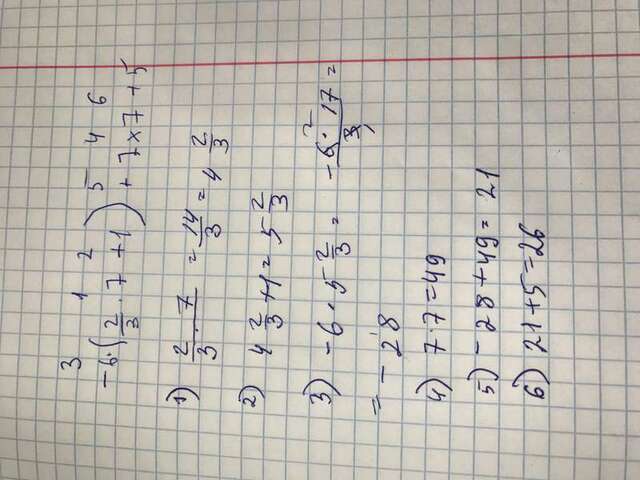 3 1 2 5 4 6
-6·(2/3 · 7 + 1) + 7×7 + 5
1) 2 · 7/3 = 14/3 = 4 2/3
2) 4 2/3 + 1 = 5 2/3
3) -6 · 5 2/3 = -6 2 · 17/3 1 =
= -28
4) 7·7=49
5) -28+49= 21
6) 21+5=26